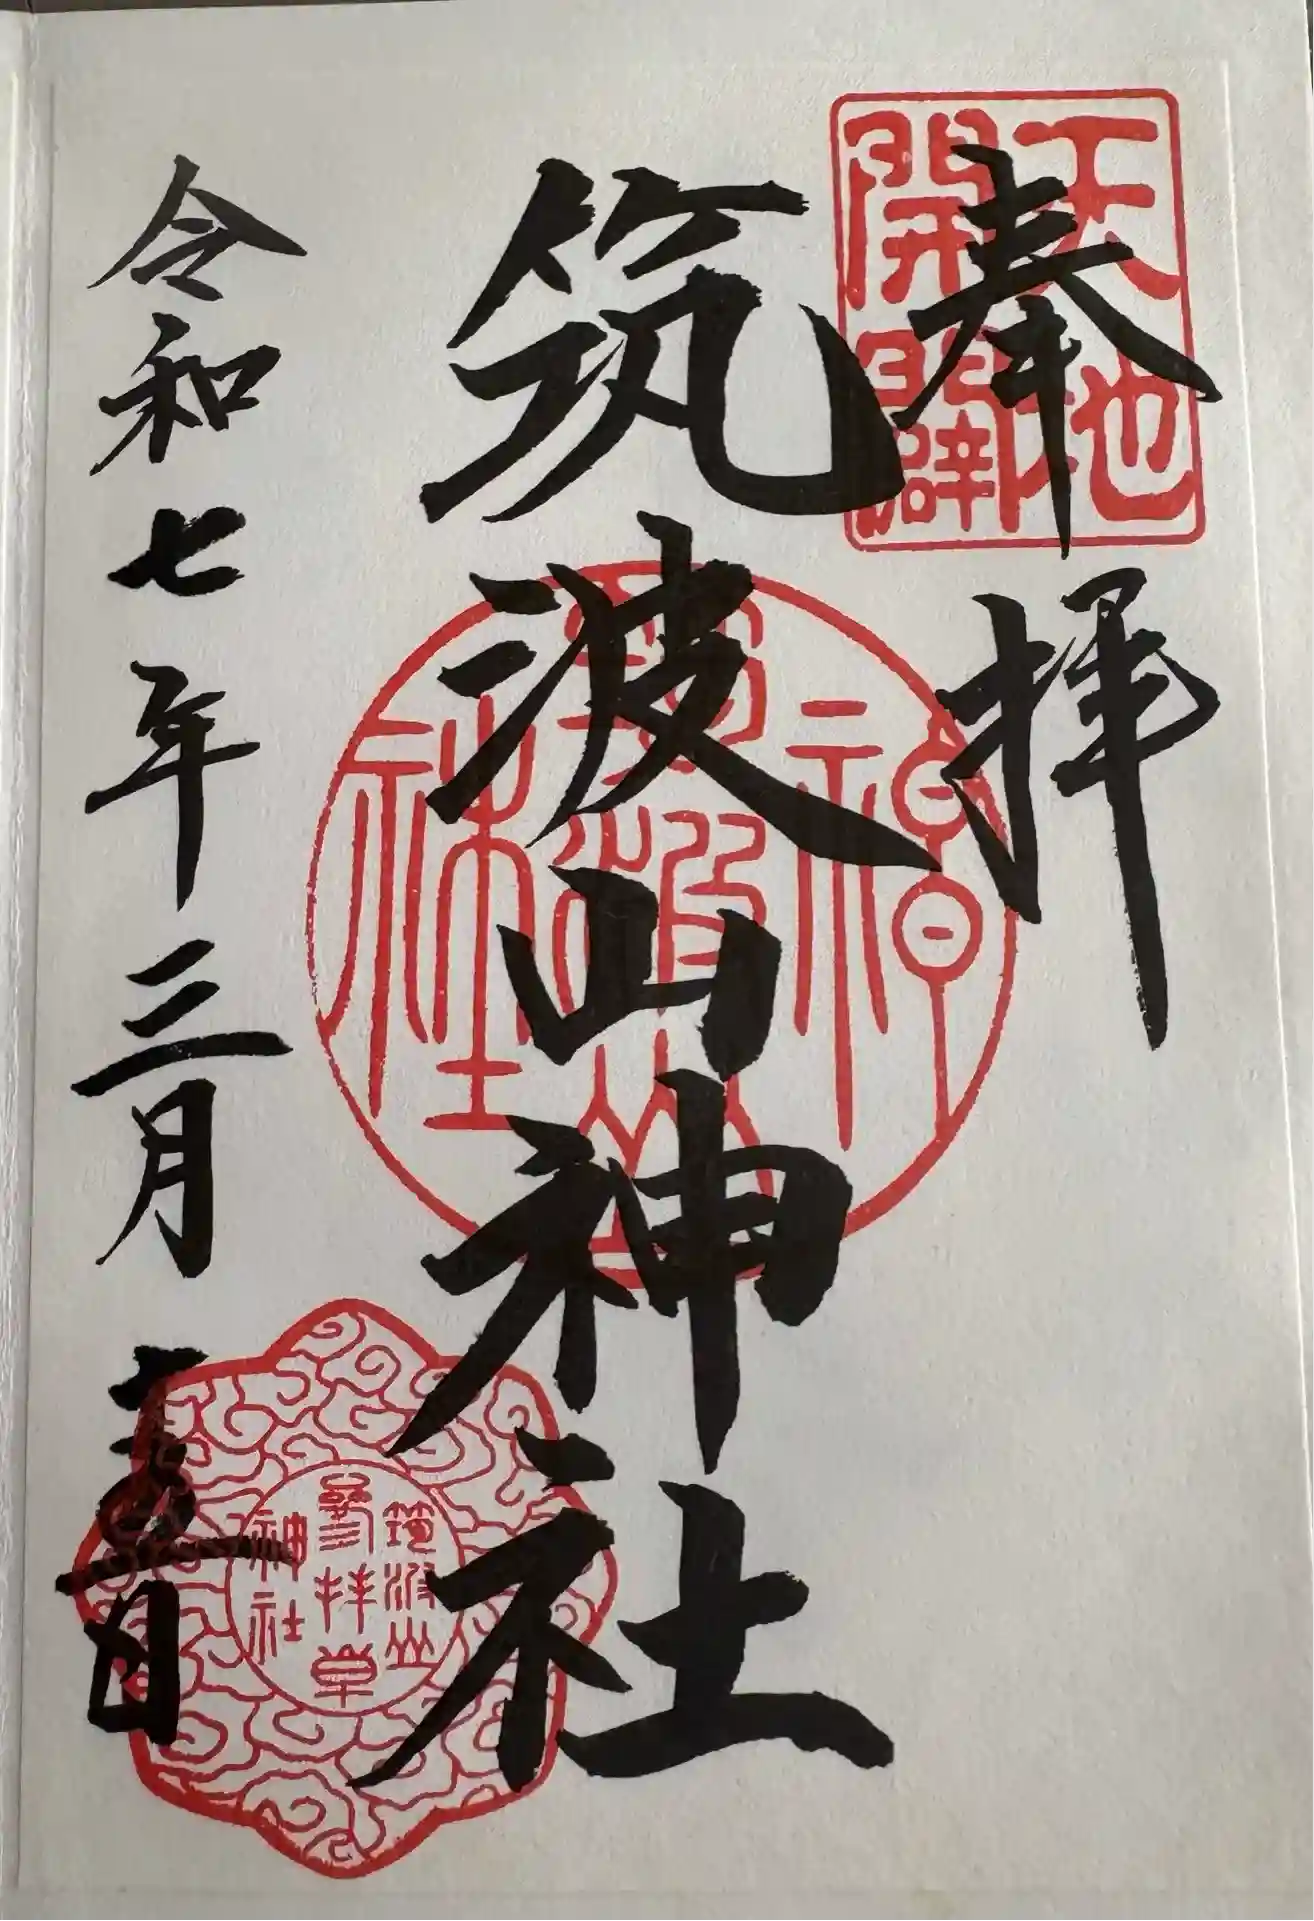 奉拝
天地
開闢
筑波山神社
神
筑波山
社
令和七年三月 日
筑波山
参拝章
神社